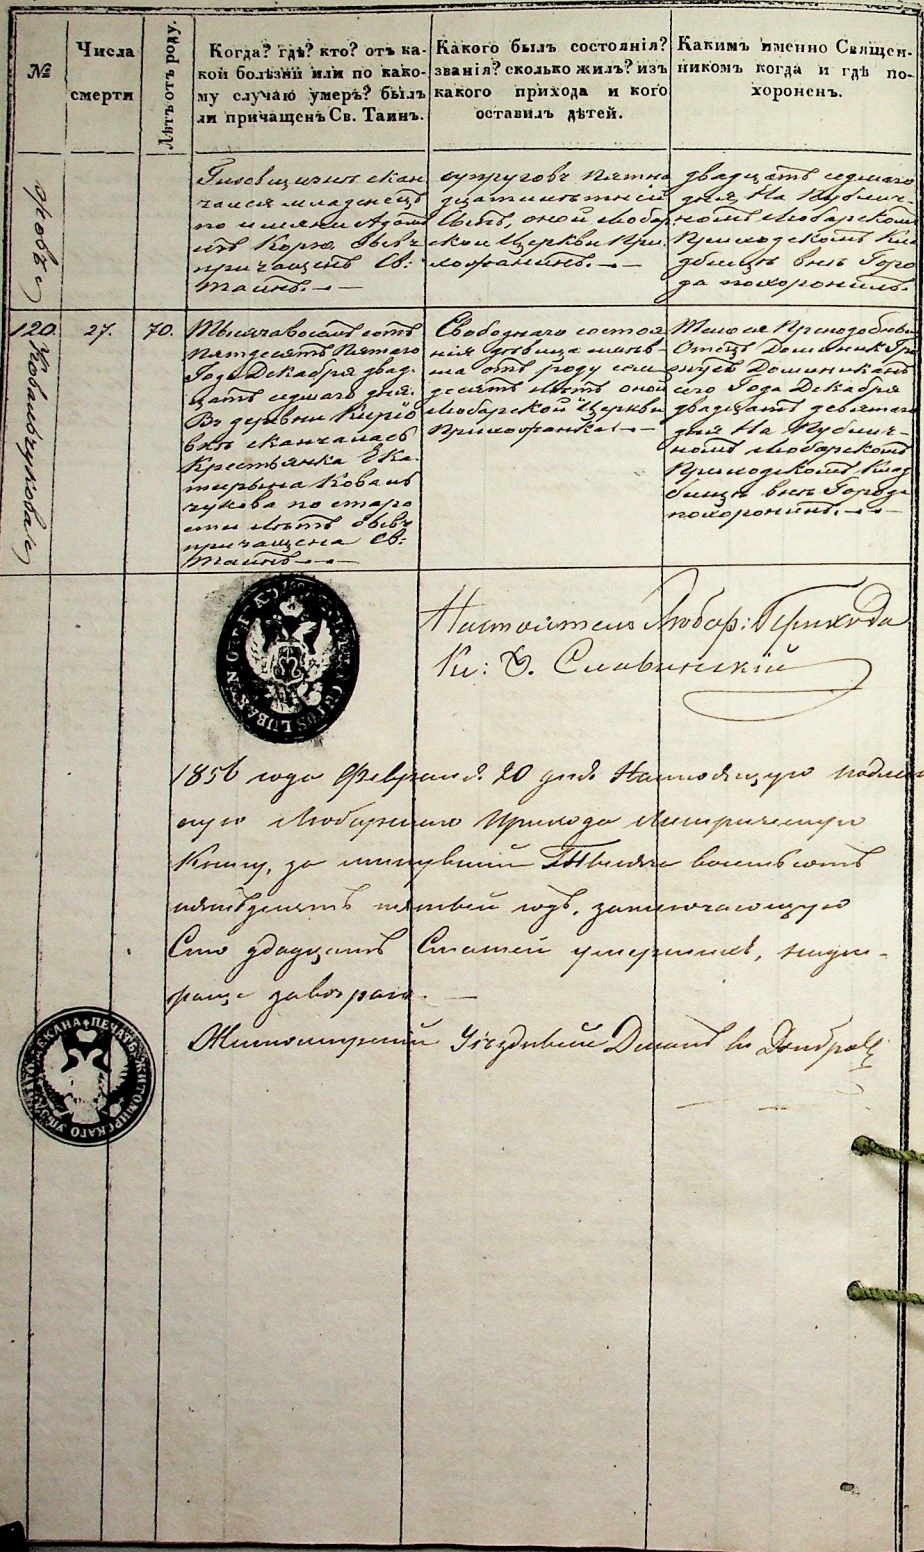 №
Числа
смерти
Лѣтъ отъ роду.
Когда? гдѣ? кто? отъ ка-
кой болѣзни или по како-
му случаю умеръ? былъ
ли причащенъ Св. Таинъ.
Какого былъ состоянія?
званія? сколько жилъ? изъ
какого прихода и кого
оставилъ дѣтей.
Каким именно Священ-
никомъ когда и гдѣ по-
хороненъ.
скон
чался младенецъ
по имени Адамъ
Корю, бывъ
причащенъ Св:
Таинъ.
супруговъ Пятна
дцатилѣтній
Сынъ, оной Любар
ской Церкви При
хожанинъ.
двадцать седмаго
дня, На Публич-
номъ Любарскомъ
Приходскомъ Кла
дбищѣ внѣ Горо
да похоронилъ.
120.
Ковальчукова
27.
70.
Тысяча восемь сотъ
Пятдесятъ Пятаго
Года Декабря двад
цать седмаго дня
Въ деревни
скончалась
Крестьянка Ека
терина Коваль
чукова по старо
сти лѣтъ бывъ
причащена Св:
Таинъ
Свободнаго состоя
нія дѣвица
отъ роду сем
десятъ лѣтъ оной
Любарской Церкви
Прихожанка
Тогоже Преподобный
Отецъ Доминикъ
Доминиканъ
сего Года Декабря
двадцать девятаго
дня На Публич-
номъ Любарскомъ
Приходскомъ Клад
бищѣ внѣ Города
похоронилъ.
Настоятель Любар: Прихода
Кс: Славинскій
1856 года Февраля 20 дня Настоящую подлин
ную Любарскаго Прихода Метрическую
Книгу, за минувший Тысяча восемьсотъ
пятьдесятъ пятый годъ, заключающую
Сто двадцать Статей умершихъ,
Житомирскій Уѣздный Деканъ
ПЕЧАТЬ ЖИТОМИРСКАГО ДЕКАНА